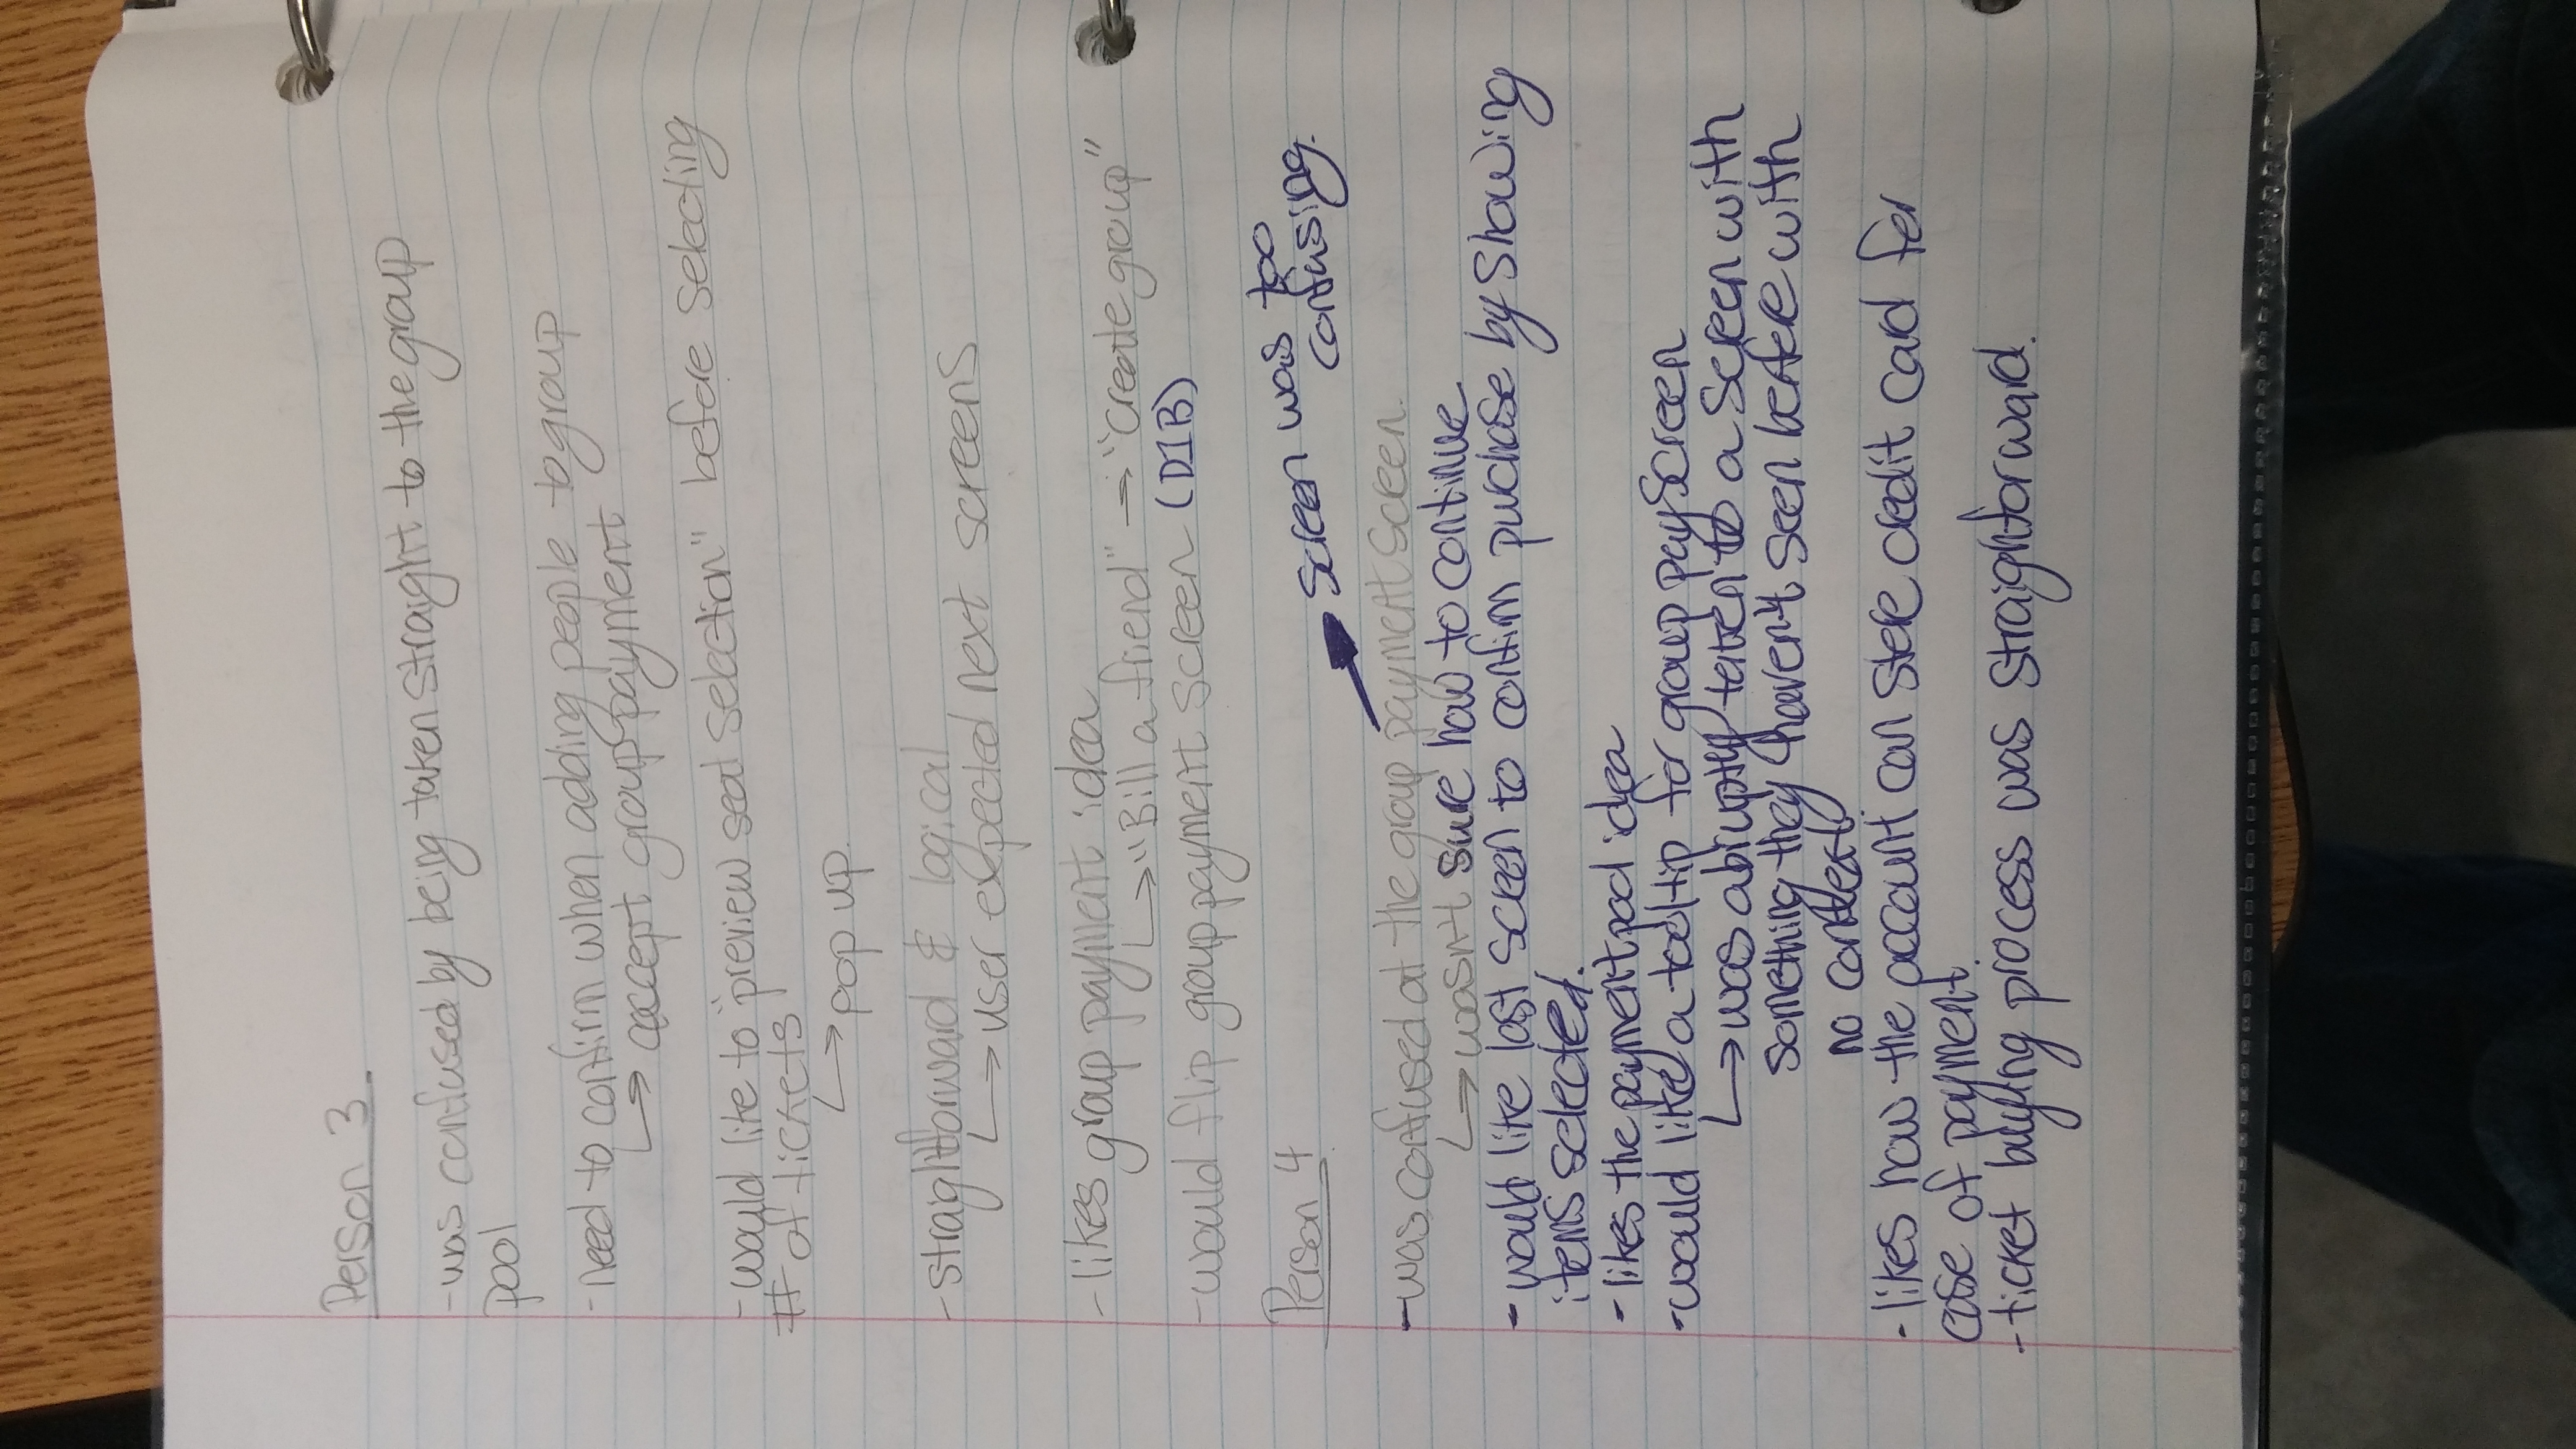 Person 3
-was confused by being taken straight to the group
pool
-need to confirm when adding people to group
↳ accept group payment
-would like to "preview seat selection" before selecting
# of tickets
↳ pop up.
-straightforward & logical
↳ user expected next screens
-likes group payment idea
↳ "Bill a friend" → "Create group"
-would flip group payment screen (D1B)
Person 4
screen was too
confusing.
-was confused at the group payment screen.
↳ wasn't sure how to continue
-would like last screen to confirm purchase by showing
items selected.
-likes the payment pool idea
-would like a tooltip for group pay screen
↳ was abruptly taken to a screen with
something they haven't seen before with
no context.
-likes how the account can store credit card for
ease of payment.
-ticket buying process was straighforward.